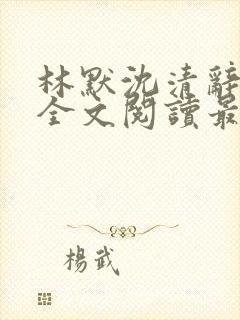 林默沈清辭
全文閱讀最
楊武